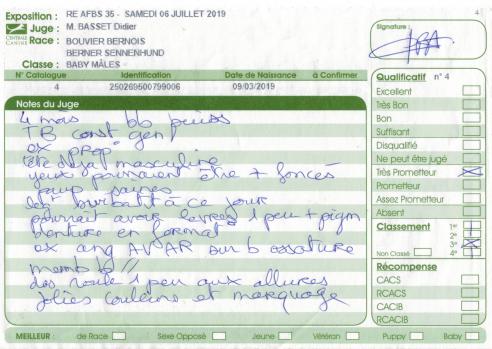 Exposition : RE AFBS 35 - SAMEDI 06 JUILLET 2019
Juge : M. BASSET Didier
CENTRALE CANINE
Race : BOUVIER BERNOIS
BERNER SENNENHUND
Classe : BABY MÂLES
N° Catalogue Identification Date de Naissance à Confirmer
4 250269500799006 09/03/2019
Notes du Juge
4 mois bb puiss
TB const gen
ex prop
tête masculine
yeux pourraient être + foncés
paup saines
ce jour
pourrait avoir lèvres 1 peu + pigm
denture en format
ex ang AV AR sur b ossature
memb b //
dos roule 1 peu aux allures
jolies couleurs et marquage
4
Signature :
Qualificatif n° 4
Excellent
Très Bon
Bon
Suffisant
Disqualifié
Ne peut être jugé
Très Prometteur
Prometteur
Assez Prometteur
Absent
Classement 1er
2e
3e
Non Classé 4e
Récompense
CACS
RCACS
CACIB
RCACIB
MEILLEUR : de Race Sexe Opposé Jeune Vétéran Puppy Baby